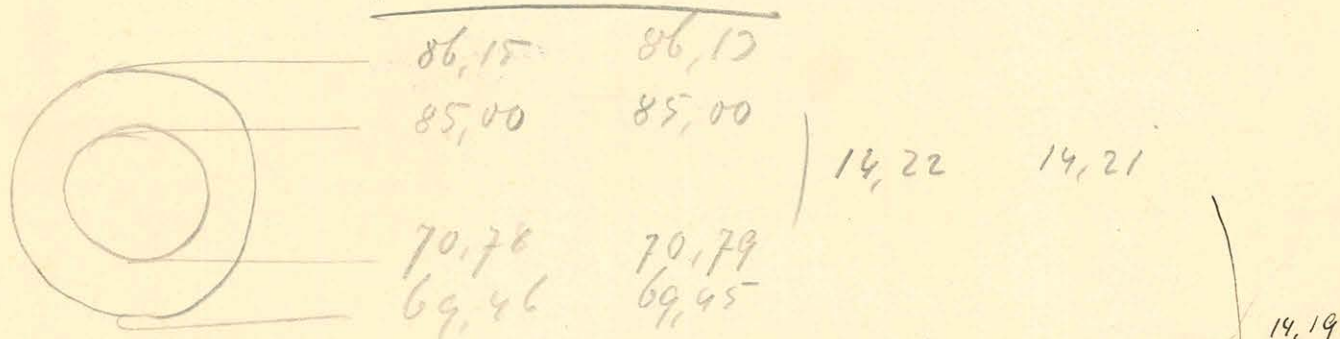 86,15 86,13
85,00 85,00
14,22 14,21
70,78 70,79
69,46 69,45
14,19